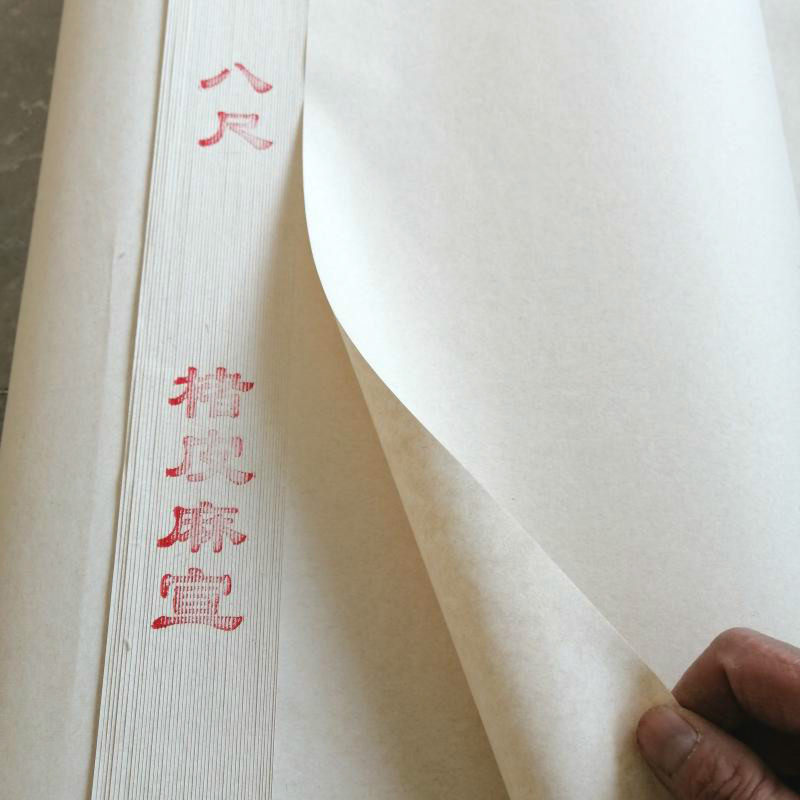 八尺
楮皮麻宣